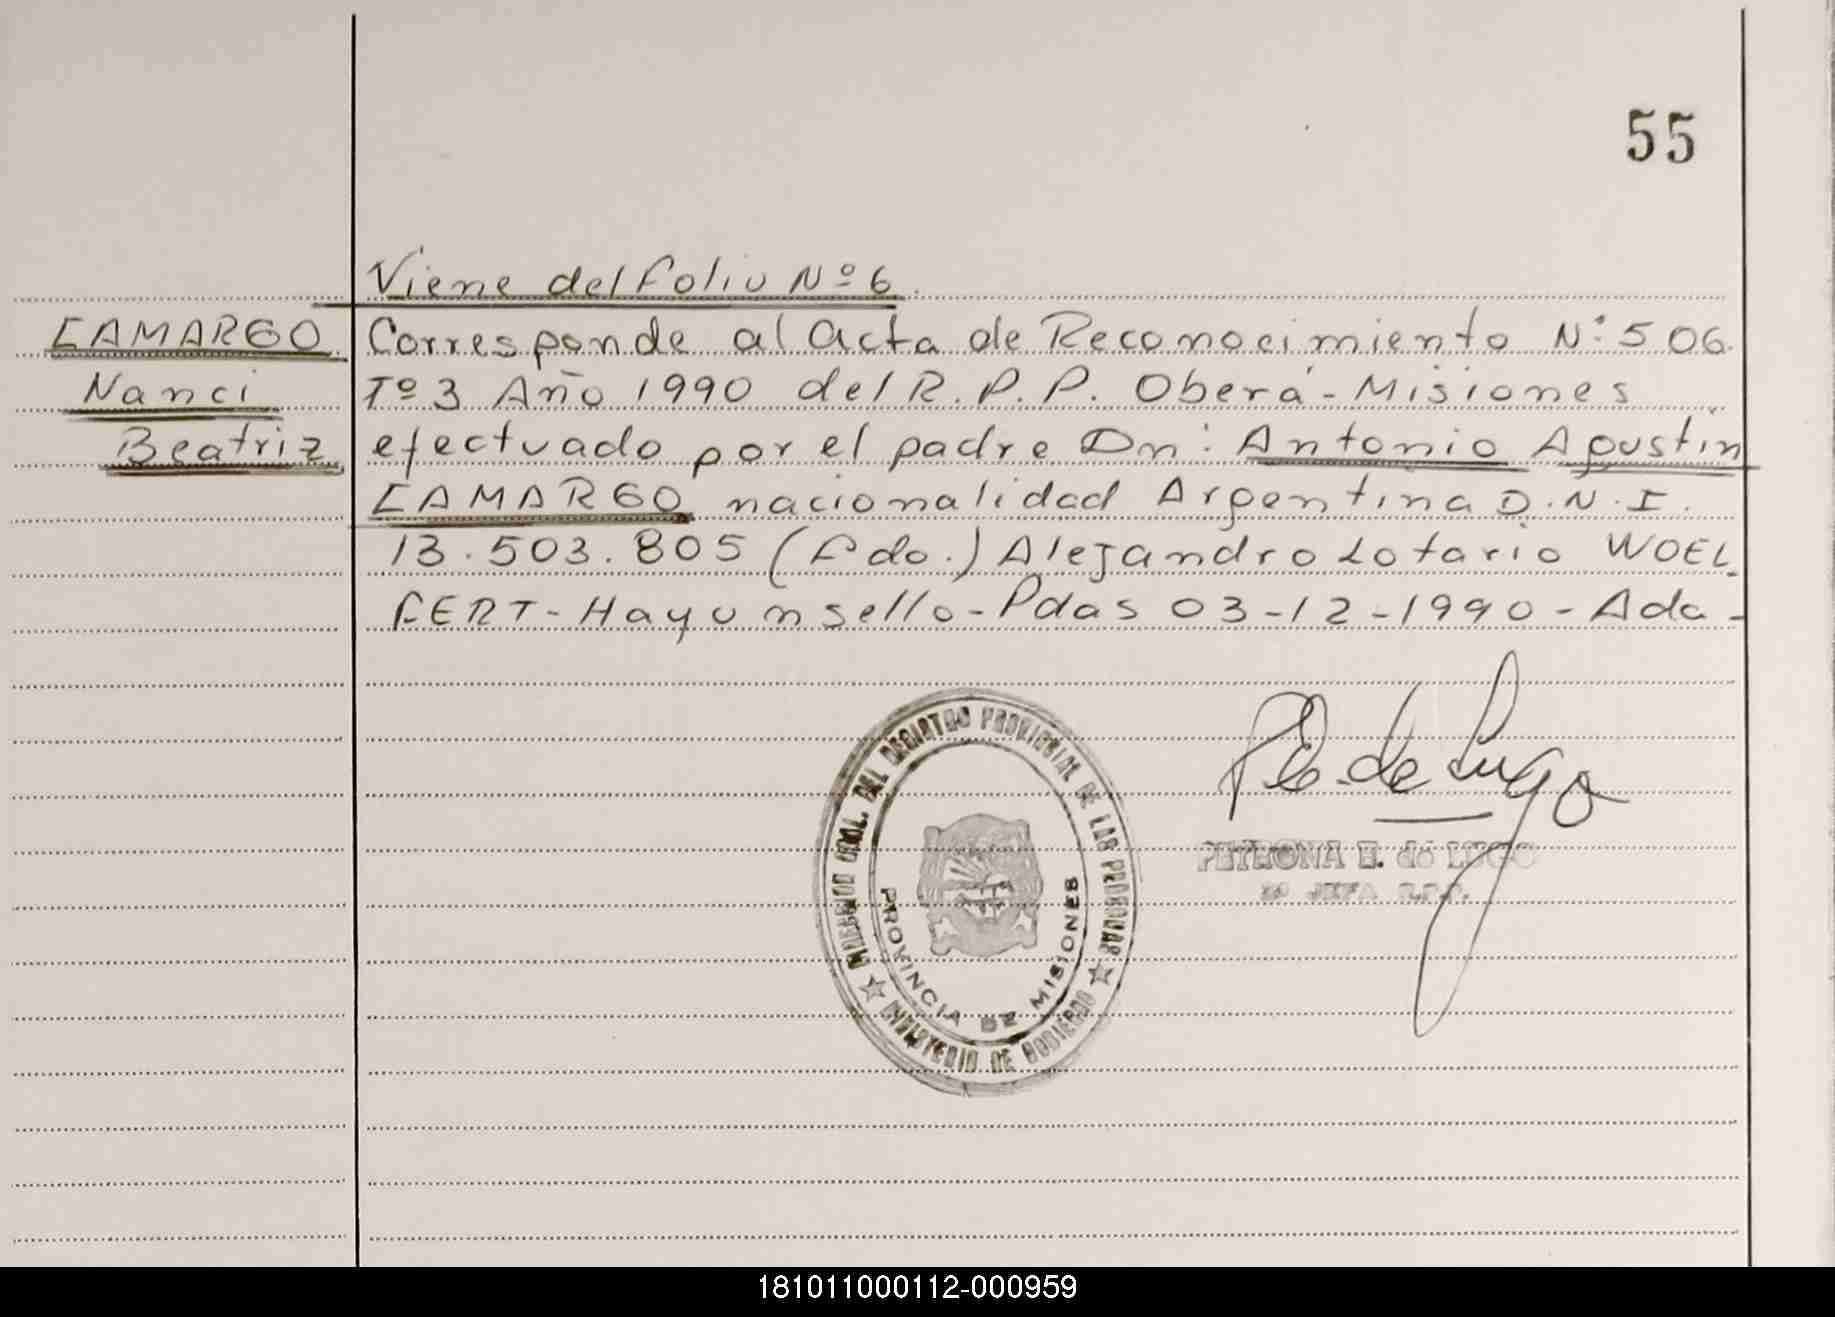 55
Viene del Folio Nº 6
CAMARGO
Nanci
Beatriz
Corresponde al acta de Reconocimiento Nº 506
Tº 3 Año 1990 del R.P.P. Oberá - Misiones
efectuado por el padre Dn: Antonio Agustín
CAMARGO nacionalidad Argentina D.N.I.
13.503.805 (Fdo.) Alejandro Lotario WOEL
FERT - Hay un sello - Pdas 03-12-1990 - Ada -
P E. de Lugo
PETRONA E. de LUGO
2º JEFA R.P.P.
DIRECCION GRAL. DEL REGISTRO PROVINCIAL DE LAS PERSONAS
PROVINCIA DE MISIONES
MINISTERIO DE GOBIERNO
181011000112-000959